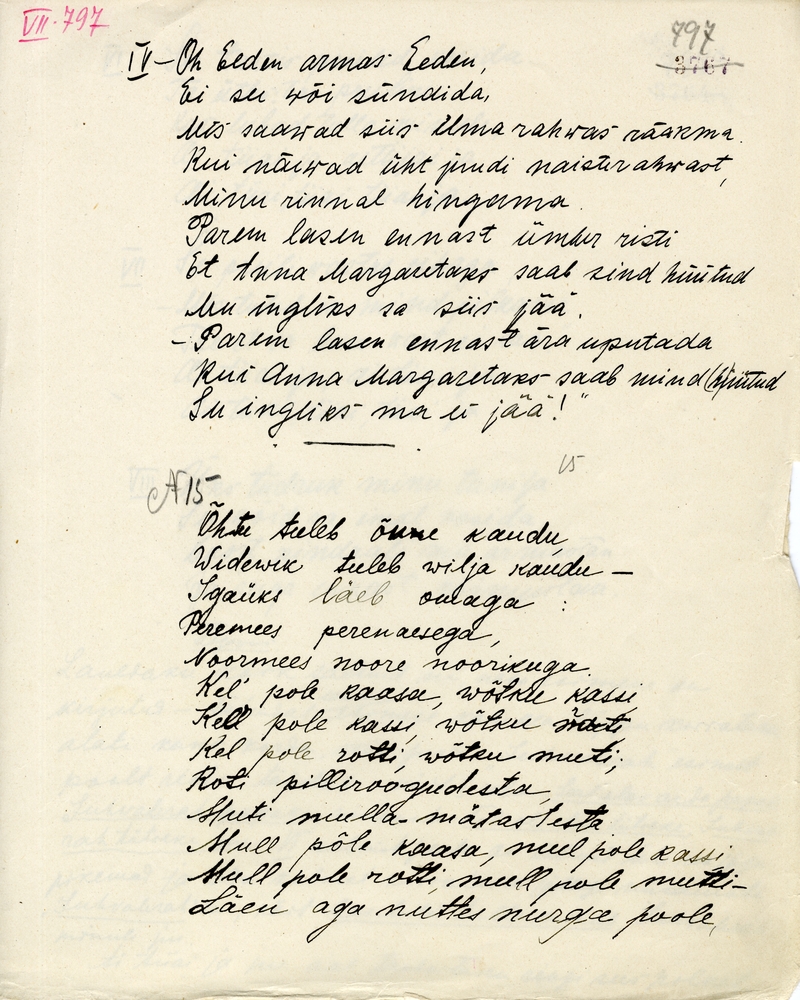 VII·797
797
3767
IV – Oh Eeden armas Eeden,
Ei see wõi sündida,
Mis saawad siis ilma rahwas rääkma.
Kui näewad üht juudi naisterahwast,
Minu rinnal hingama.
Parem lasen ennast ümber risti
Et Anna Margaretaks saab sind hüütud
Mu ingliks sa siis jää.
– Parem lasen ennast ära uputada
Kui Anna Margaretaks saab mind (h)üütud
Su ingliks ma ei jää!"
15
N 15
Õhtu tuleb õue kaudu,
Widewik tuleb wilja kaudu –
Igaüks läeb omaga :
Peremees perenaesega,
Noormees noore noorikuga.
Kel' pole kaasa, wõtku kassi,
Kell pole kassi, wõtku
Kel pole rotti, wõtku muti;
Roti pilliroogudesta,
Muti mulla-mätastesta
Mull põle kaasa, mul pole kassi
Mull pole rotti, mull pole mutti –
Läen aga nuttes nurga poole,